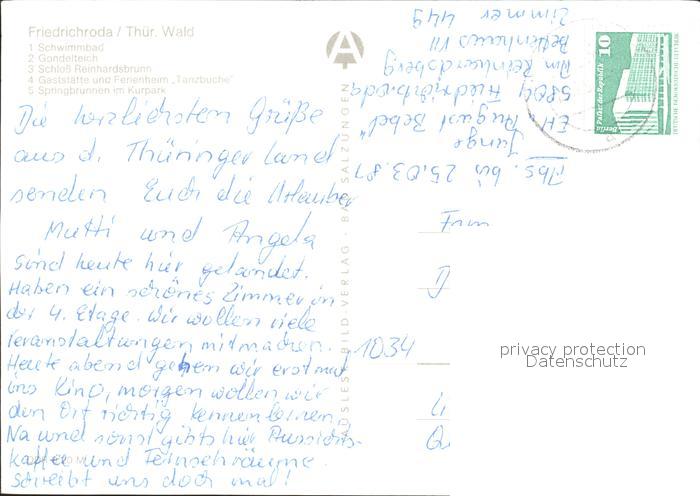 Friedrichroda / Thür. Wald
1 Schwimmbad
2 Gondelteich
3 Schloß Reinhardsbrunn
4 Gaststätte und Ferienheim „Tanzbuche"
5 Springbrunnen im Kurpark
Die herzlichsten Grüße
aus d. Thüringer Land
senden Euch die Urlauber
Mutti und Angela
sind heute hier gelandet.
Haben ein schönes Zimmer in
der 4. Etage. Wir wollen viele
Veranstaltungen mitmachen.
Heute abend gehen wir erstmal
ins Kino, morgen wollen wir
den Ort richtig kennenlernen.
Na und sonst gibts hier Aussichts-
kaffee und Fernsehräume.
Schreibt uns doch mal!
AUSLESE-BILD-VERLAG · BAD SALZUNGEN
Abs. bis 25.03.81
Junge
EH „August Bebel"
5804 Friedrichroda
Am Reinhardsberg
Bettenhaus VII
Zimmer 449
10
Berlin Palast der Republik
Frau
1034
privacy protection
Datenschutz